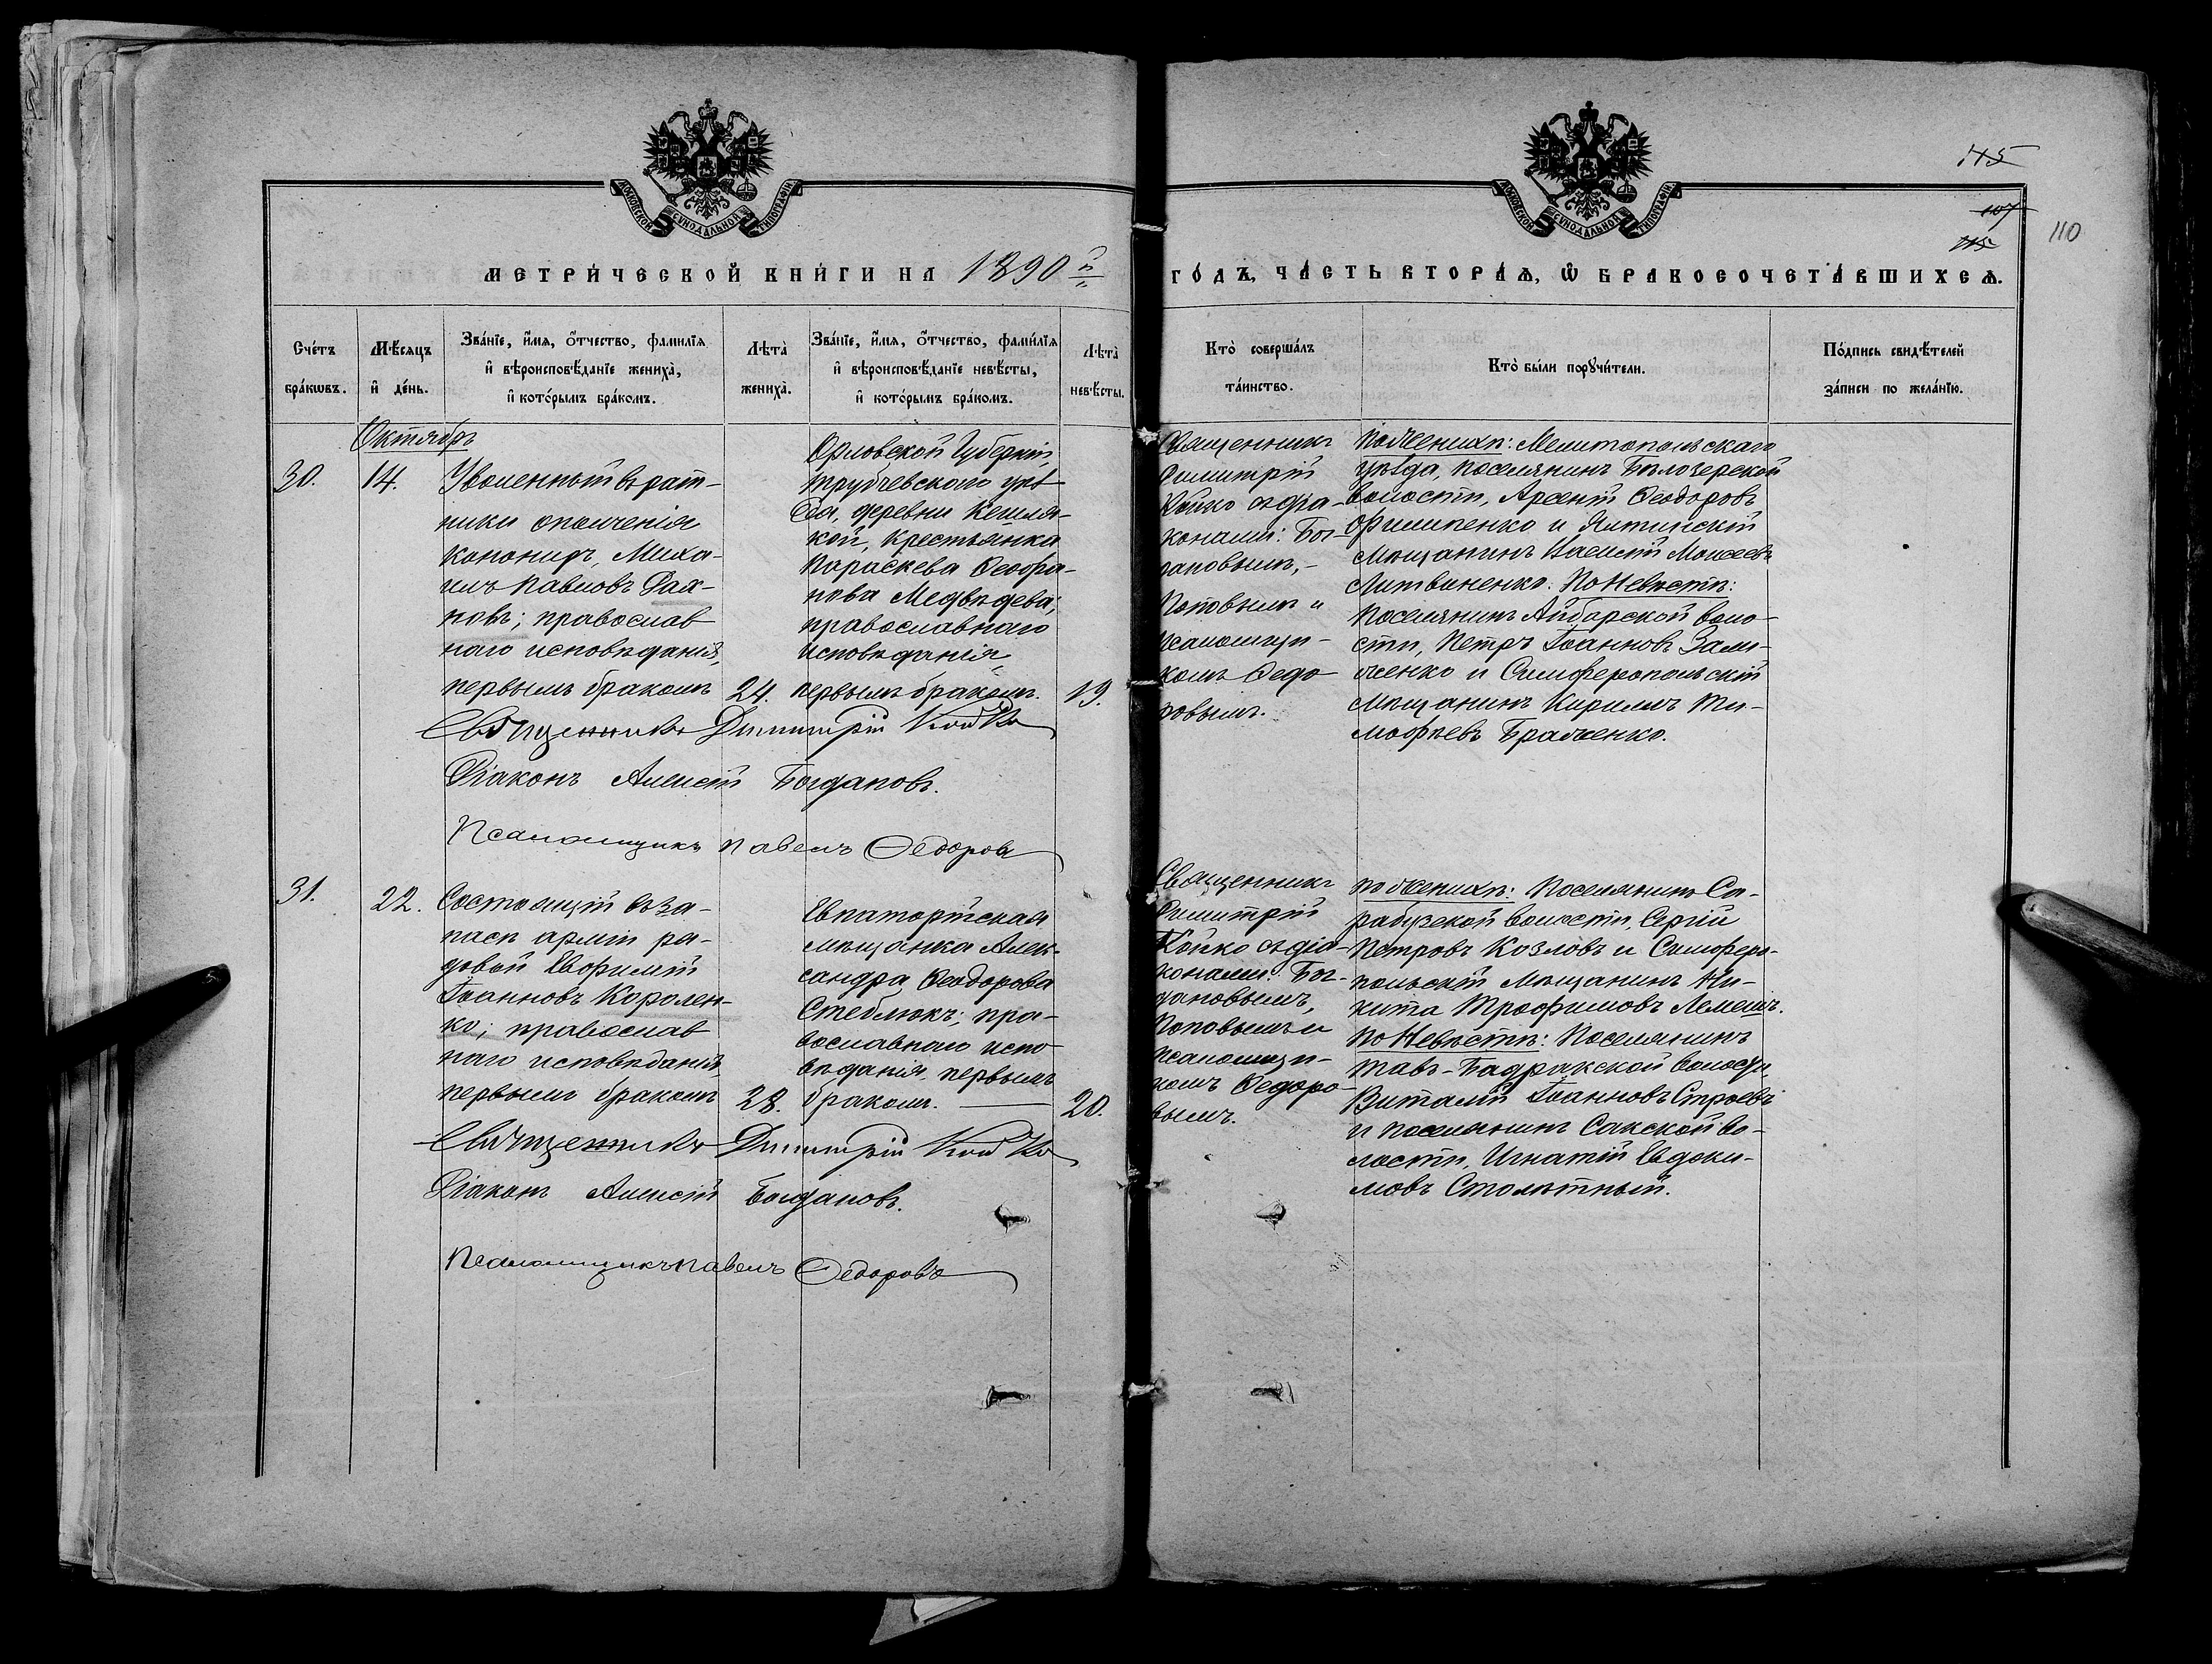 МОСКОВСКОЙ СѴНОДАЛЬНОЙ ТИПОГРАФІИ
МОСКОВСКОЙ СѴНОДАЛЬНОЙ ТИПОГРАФІИ
115
107
115
110
МЕТРИ́ЧЕСКОЙ КНИ́ГИ НА 1890й
ГО́ДЪ, ЧА́СТЬ ВТОРА́Ѧ, Ѡ҆ БРАКОСОЧЕТА́ВШИХСѦ.
Сче́тъ бра́кѡвъ.
Мѣ́сѧцъ и҆ де́нь.
Зва́нїе, и҆́мѧ, ѻ҆́тчество, фами́лїѧ и҆ вѣроисповѣ́данїе жениха̀, и҆ кото́рымъ бра́комъ.
Лѣта̀ жениха̀.
Зва́нїе, и҆́мѧ, ѻ҆́тчество, фами́лїѧ и҆ вѣроисповѣ́данїе невѣ́сты, и҆ кото́рымъ бра́комъ.
Лѣта̀ невѣ́сты.
Кто̀ соверша́лъ та́инство.
Кто̀ бы́ли порꙋчи́тели.
По́дпись свидѣ́телей за́писи по жела́нїю.
Октябрь
30.
14.
Уволенный въ рат-
ники ополченія
канониръ, Миха-
илъ Павловъ Рах-
новъ; православ
наго исповѣданія,
первымъ бракомъ
24.
Орловской Губерніи,
Трубчевскаго уѣз
да, деревни
кой, крестьянка
Параскева Феофа-
нова Медвѣдева;
православнаго
исповѣданія,
первымъ бракомъ.
19.
Священникъ
Димитрій
Койко съ діа-
конами: Бог-
дановымъ, -
Поповымъ и
псаломщи-
комъ Федо-
ровымъ.
По женихѣ: Мелитопольскаго
уѣзда, поселянинъ Бѣлозерской
волости, Арсеній Феодоровъ
Филипенко и Ялтинскій
мѣщанинъ Калистъ Моисеевъ
Литвиненко. По Невѣстѣ:
Поселянинъ Айбарской воло-
сти, Петръ Іоанновъ
и Симферопольскій
мѣщанинъ Кирилъ Ти-
мофѣевъ Браженко.
Священникъ Димитрій Койко
Діаконъ Алексій Богдановъ.
Псаломщикъ Павелъ Федоровъ
31.
22.
Состоящій въ за-
пасѣ арміи ря-
довой Евфимій
Іоанновъ Королен-
ко; православ
наго исповѣданія,
первымъ бракомъ
28.
Евпаторійская
мѣщанка Алек-
сандра Феодорова
Стеблюкъ; пра-
вославнаго испо
вѣданія, первымъ
бракомъ.
20.
Священникъ
Димитрій
Койко съ діа-
конами: Бог-
дановымъ,
Поповымъ и
псаломщи-
комъ Федоро-
вымъ.
По женихѣ: Поселянинъ Са-
рабузской волости, Сергій
Петровъ Козловъ и Симферо-
польскій мѣщанинъ Ни-
кита Трофимовъ Лемешъ.
По Невѣстѣ: Поселянинъ
Тавъ-Бадракской волости,
Виталій Іоанновъ Строевъ
и поселянинъ Сакской во-
лости, Игнатій Евдоки-
мовъ Столѣтный.
Священникъ Димитрій Койко
Діаконъ Алексій Богдановъ.
Псаломщикъ Павелъ Федоровъ